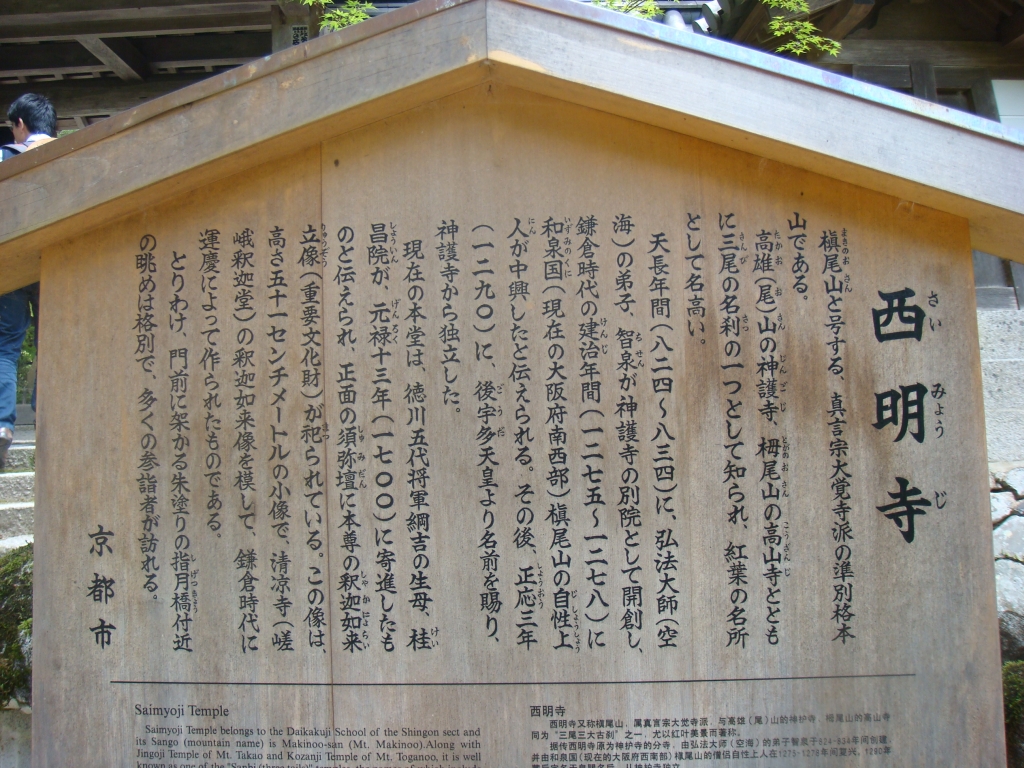 西明寺
さいみょうじ
槇尾山と号する、真言宗大覚寺派の準別格本
山である。
高雄(尾)山の神護寺、栂尾山の高山寺ととも
に三尾の名刹の一つとして知られ、紅葉の名所
として名高い。
天長年間(八二四〜八三四)に、弘法大師(空
海)の弟子、智泉が神護寺の別院として開創し、
鎌倉時代の建治年間(一二七五〜一二七八)に
和泉国(現在の大阪府南西部)槇尾山の自性上
人が中興したと伝えられる。その後、正応三年
(一二九〇)に、後宇多天皇より名前を賜り、
神護寺から独立した。
現在の本堂は、徳川五代将軍綱吉の生母、桂
昌院が、元禄十三年(一七〇〇)に寄進したも
のと伝えられ、正面の須弥壇に本尊の釈迦如来
立像(重要文化財)が祀られている。この像は、
高さ五十一センチメートルの小像で、清凉寺(嵯
峨釈迦堂)の釈迦如来像を模して、鎌倉時代に
運慶によって作られたものである。
とりわけ、門前に架かる朱塗りの指月橋付近
の眺めは格別で、多くの参詣者が訪れる。
京都市
Saimyoji Temple
Saimyoji Temple belongs to the Daikakuji School of the Shingon sect and
its Sango (mountain name) is Makinoo-san (Mt. Makinoo).Along with
Jingoji Temple of Mt. Takao and Kozanji Temple of Mt. Toganoo, it is well
known as one of the "Sanbi (three tails)" temples, the
西明寺
西明寺又称槇尾山,属真言宗大觉寺派,与高雄(尾)山的神护寺,栂尾山的高山寺
同为"三尾三大古刹"之一,尤以红叶美景而著称。
据传西明寺原为神护寺的分寺,由弘法大师(空海)的弟子智泉于824-834年间创建,
并由和泉国(现在的大阪府西南部)槇尾山的僧侣自性上人在1275-1278年间复兴,1290年